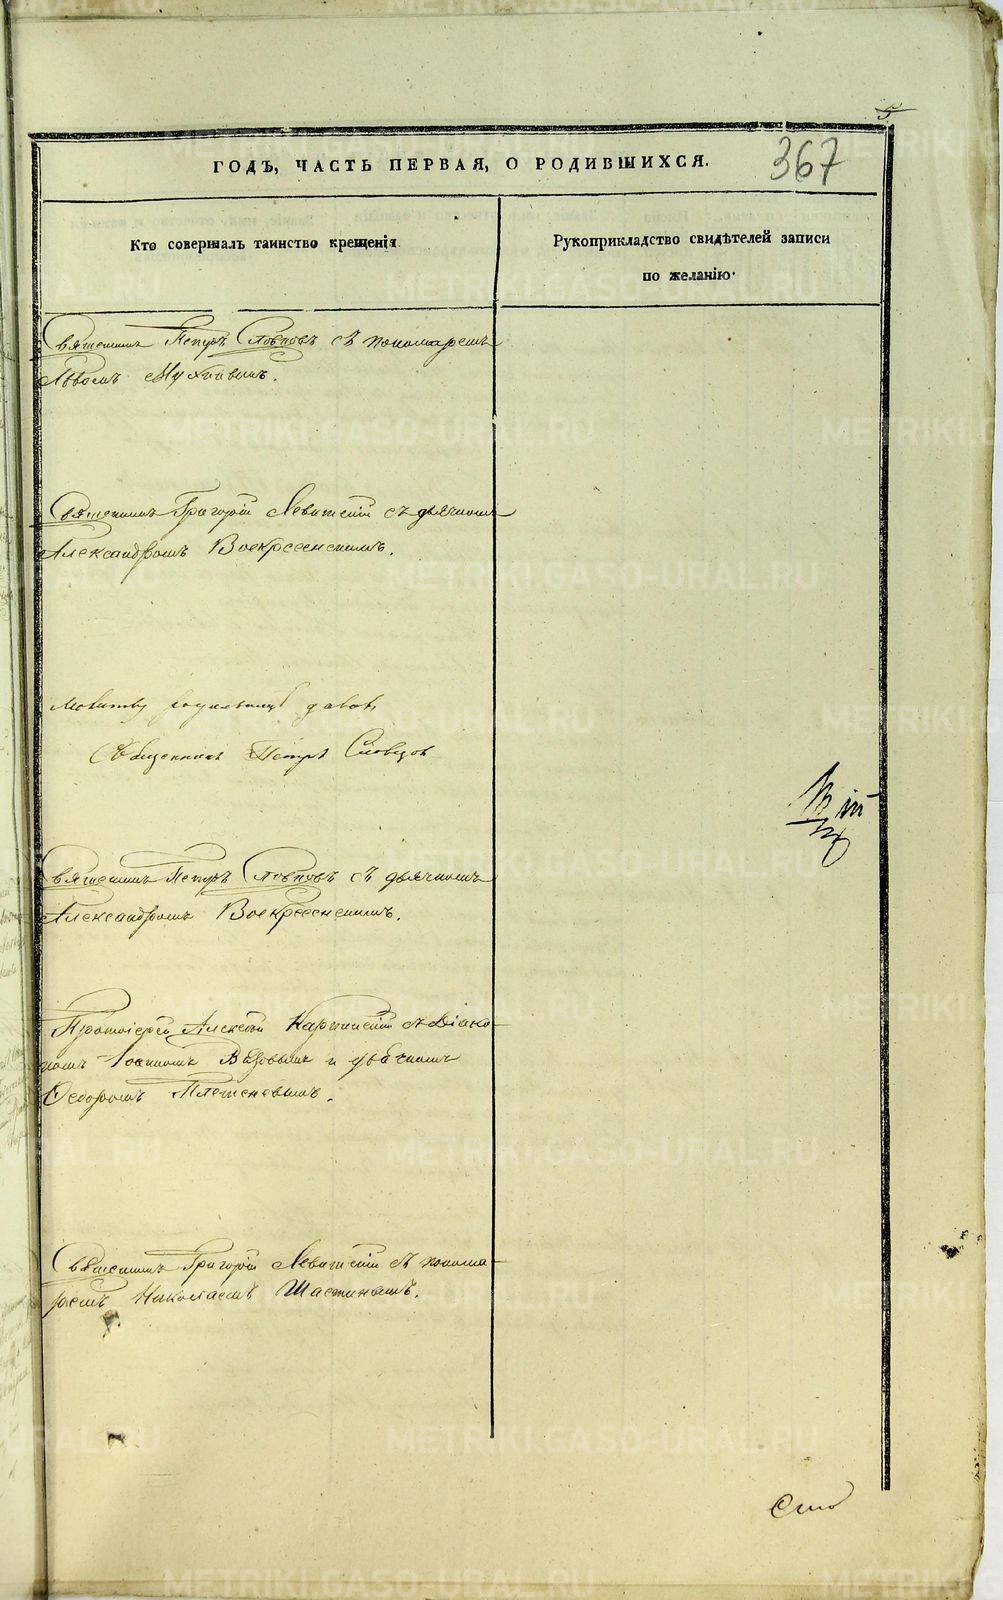 5
ГОДЪ, ЧАСТЬ ПЕРВАЯ, О РОДИВШИХСЯ.
367
Кто совершалъ таинство крещенія.
Рукоприкладство свидѣтелей записи
по желанію.
Священникъ Петръ Словцовъ съ пономаремъ
Львомъ
Священникъ Григорій Левитскій съ дьячкомъ
Александромъ Воскресенскимъ.
Молитву родильницѣ давалъ
Священникъ Петръ Словцов
Священникъ Петръ Словцовъ съ дьячкомъ
Александромъ Воскресенскимъ.
Протоіерей Алексѣй Карпинскій съ Діако-
номъ Іоанномъ и дьячкомъ
Ѳедоромъ Плотниковымъ.
Священникъ Григорій Левитскій съ понома-
ремъ Николаемъ
METRIKI.GASO-URAL.RU